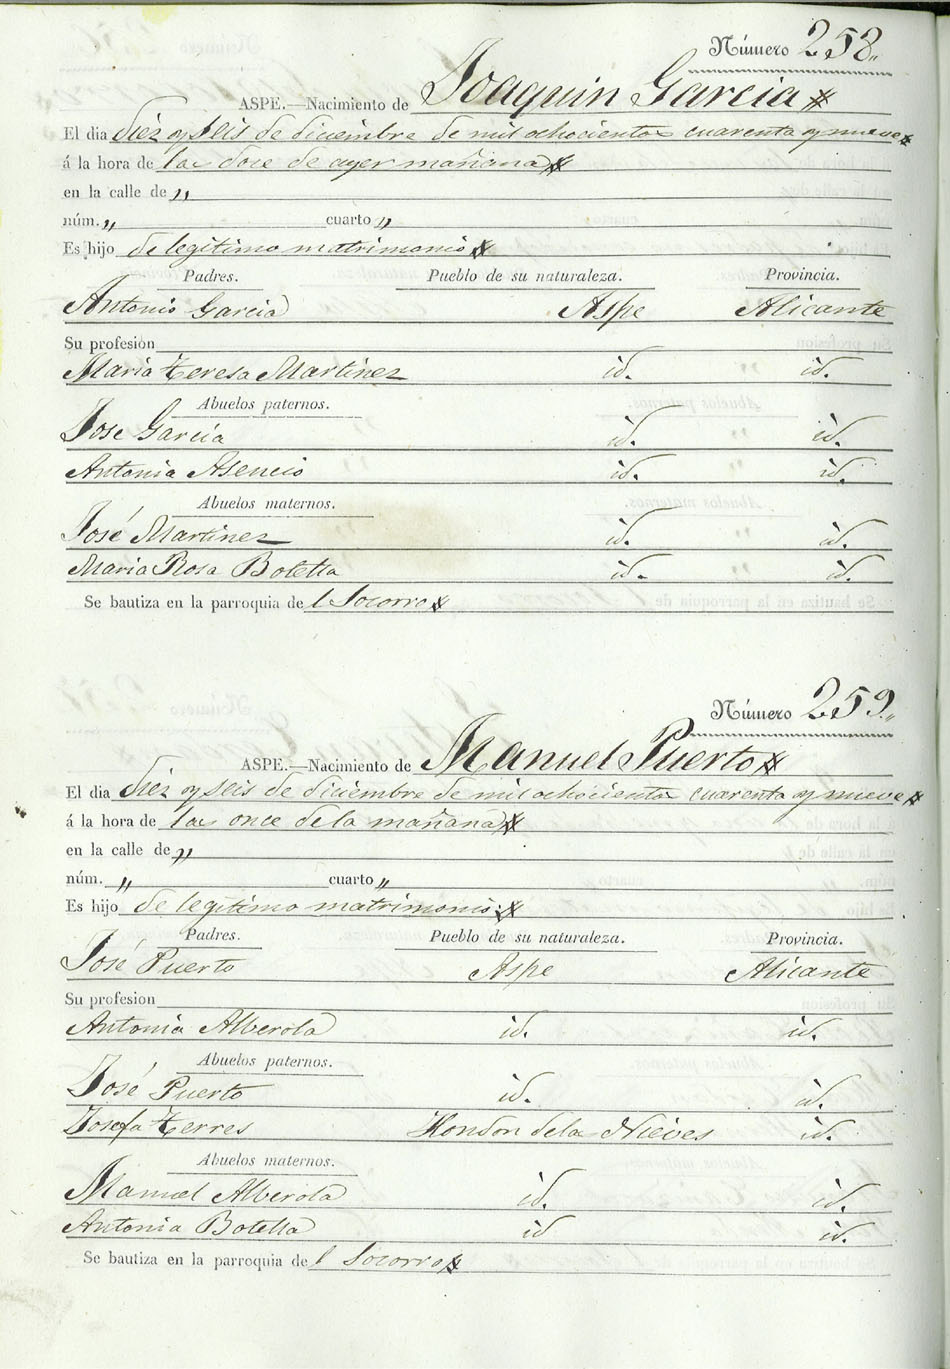 Número 258„
ASPE.—Nacimiento de Joaquin Garcia
El dia diez y seis de diciembre de mil ochocientos cuarenta y nueve
á la hora de las dose de ayer mañana
en la calle de „
núm. „ cuarto „
Es hijo de legitimo matrimonio
Padres. Pueblo de su naturaleza. Provincia.
Antonio Garcia Aspe Alicante
Su profesión
Maria Teresa Martinez id. id.
Abuelos paternos.
Jose Garcia id. id.
Antonia Asencio id. id.
Abuelos maternos.
José Martinez id. id.
Maria Rosa Botella id. id.
Se bautiza en la parroquia del Socorro
Número 259„
ASPE.—Nacimiento de Manuel Puerto
El dia diez y seis de diciembre de mil ochocientos cuarenta y nueve
á la hora de las once de la mañana
en la calle de „
núm. „ cuarto „
Es hijo de legitimo matrimonio
Padres. Pueblo de su naturaleza. Provincia.
José Puerto Aspe Alicante
Su profesion
Antonia Alberola id. id.
Abuelos paternos.
José Puerto id. id.
Josefa Terres Hondon de la Nieves id.
Abuelos maternos.
Manuel Alberola id. id.
Antonia Botella id id.
Se bautiza en la parroquia del Socorro